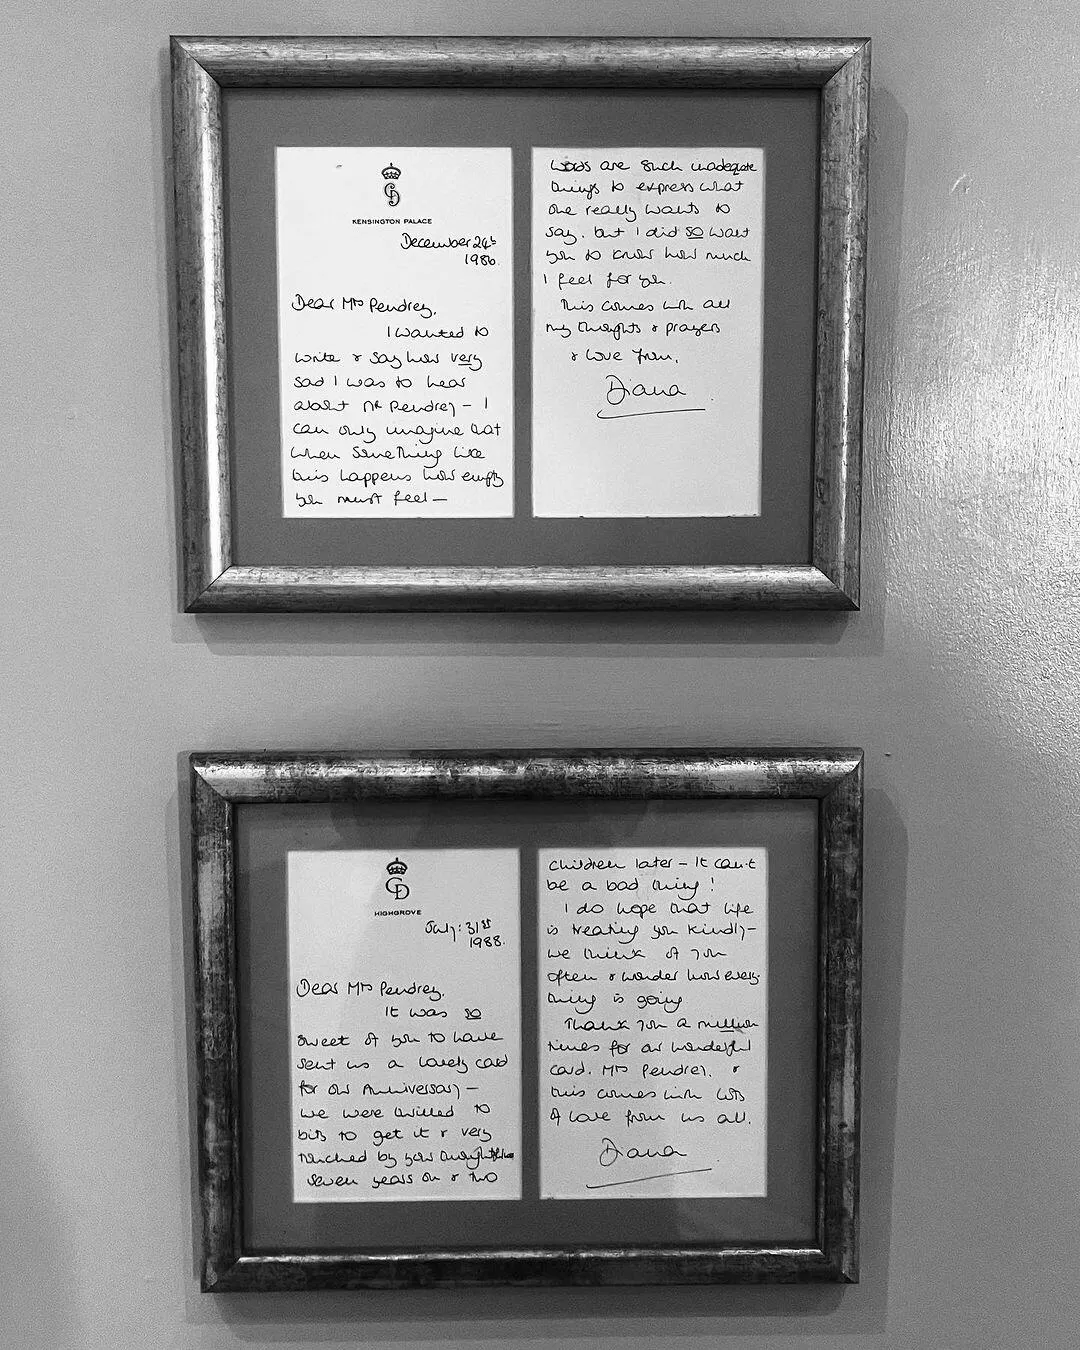 KENSINGTON PALACE
December 24th
1986.
Dear Mrs Pendrey,
I wanted to
write & say how very
sad I was to hear
about Mr Pendrey - I
can only imagine that
when something like
this happens how empty
you must feel —
Words are such inadequate
things to express what
one really wants to
say, but I did so want
you to know how much
I feel for you.
This comes with all
my thoughts & prayers
& love from,
Diana
HIGHGROVE
July: 31st
1988.
Dear Mrs Pendrey,
It was so
sweet of you to have
sent us a lovely card
for our Anniversary -
we were thrilled to
bits to get it & very
touched by your
seven years on & two
children later - it can't
be a bad thing!
I do hope that life
is treating you kindly -
we think of you
often & wonder how every-
thing is going
Thank you a million
times for our wonderful
card, Mrs Pendrey, &
this comes with lots
of love from us all,
Diana